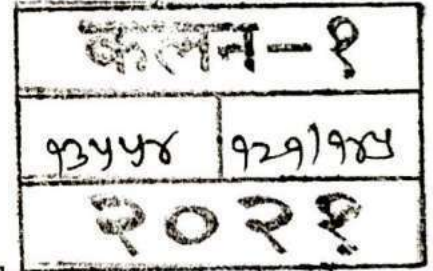 कलन-१
१३५५४ १२१/१४५
२०२१